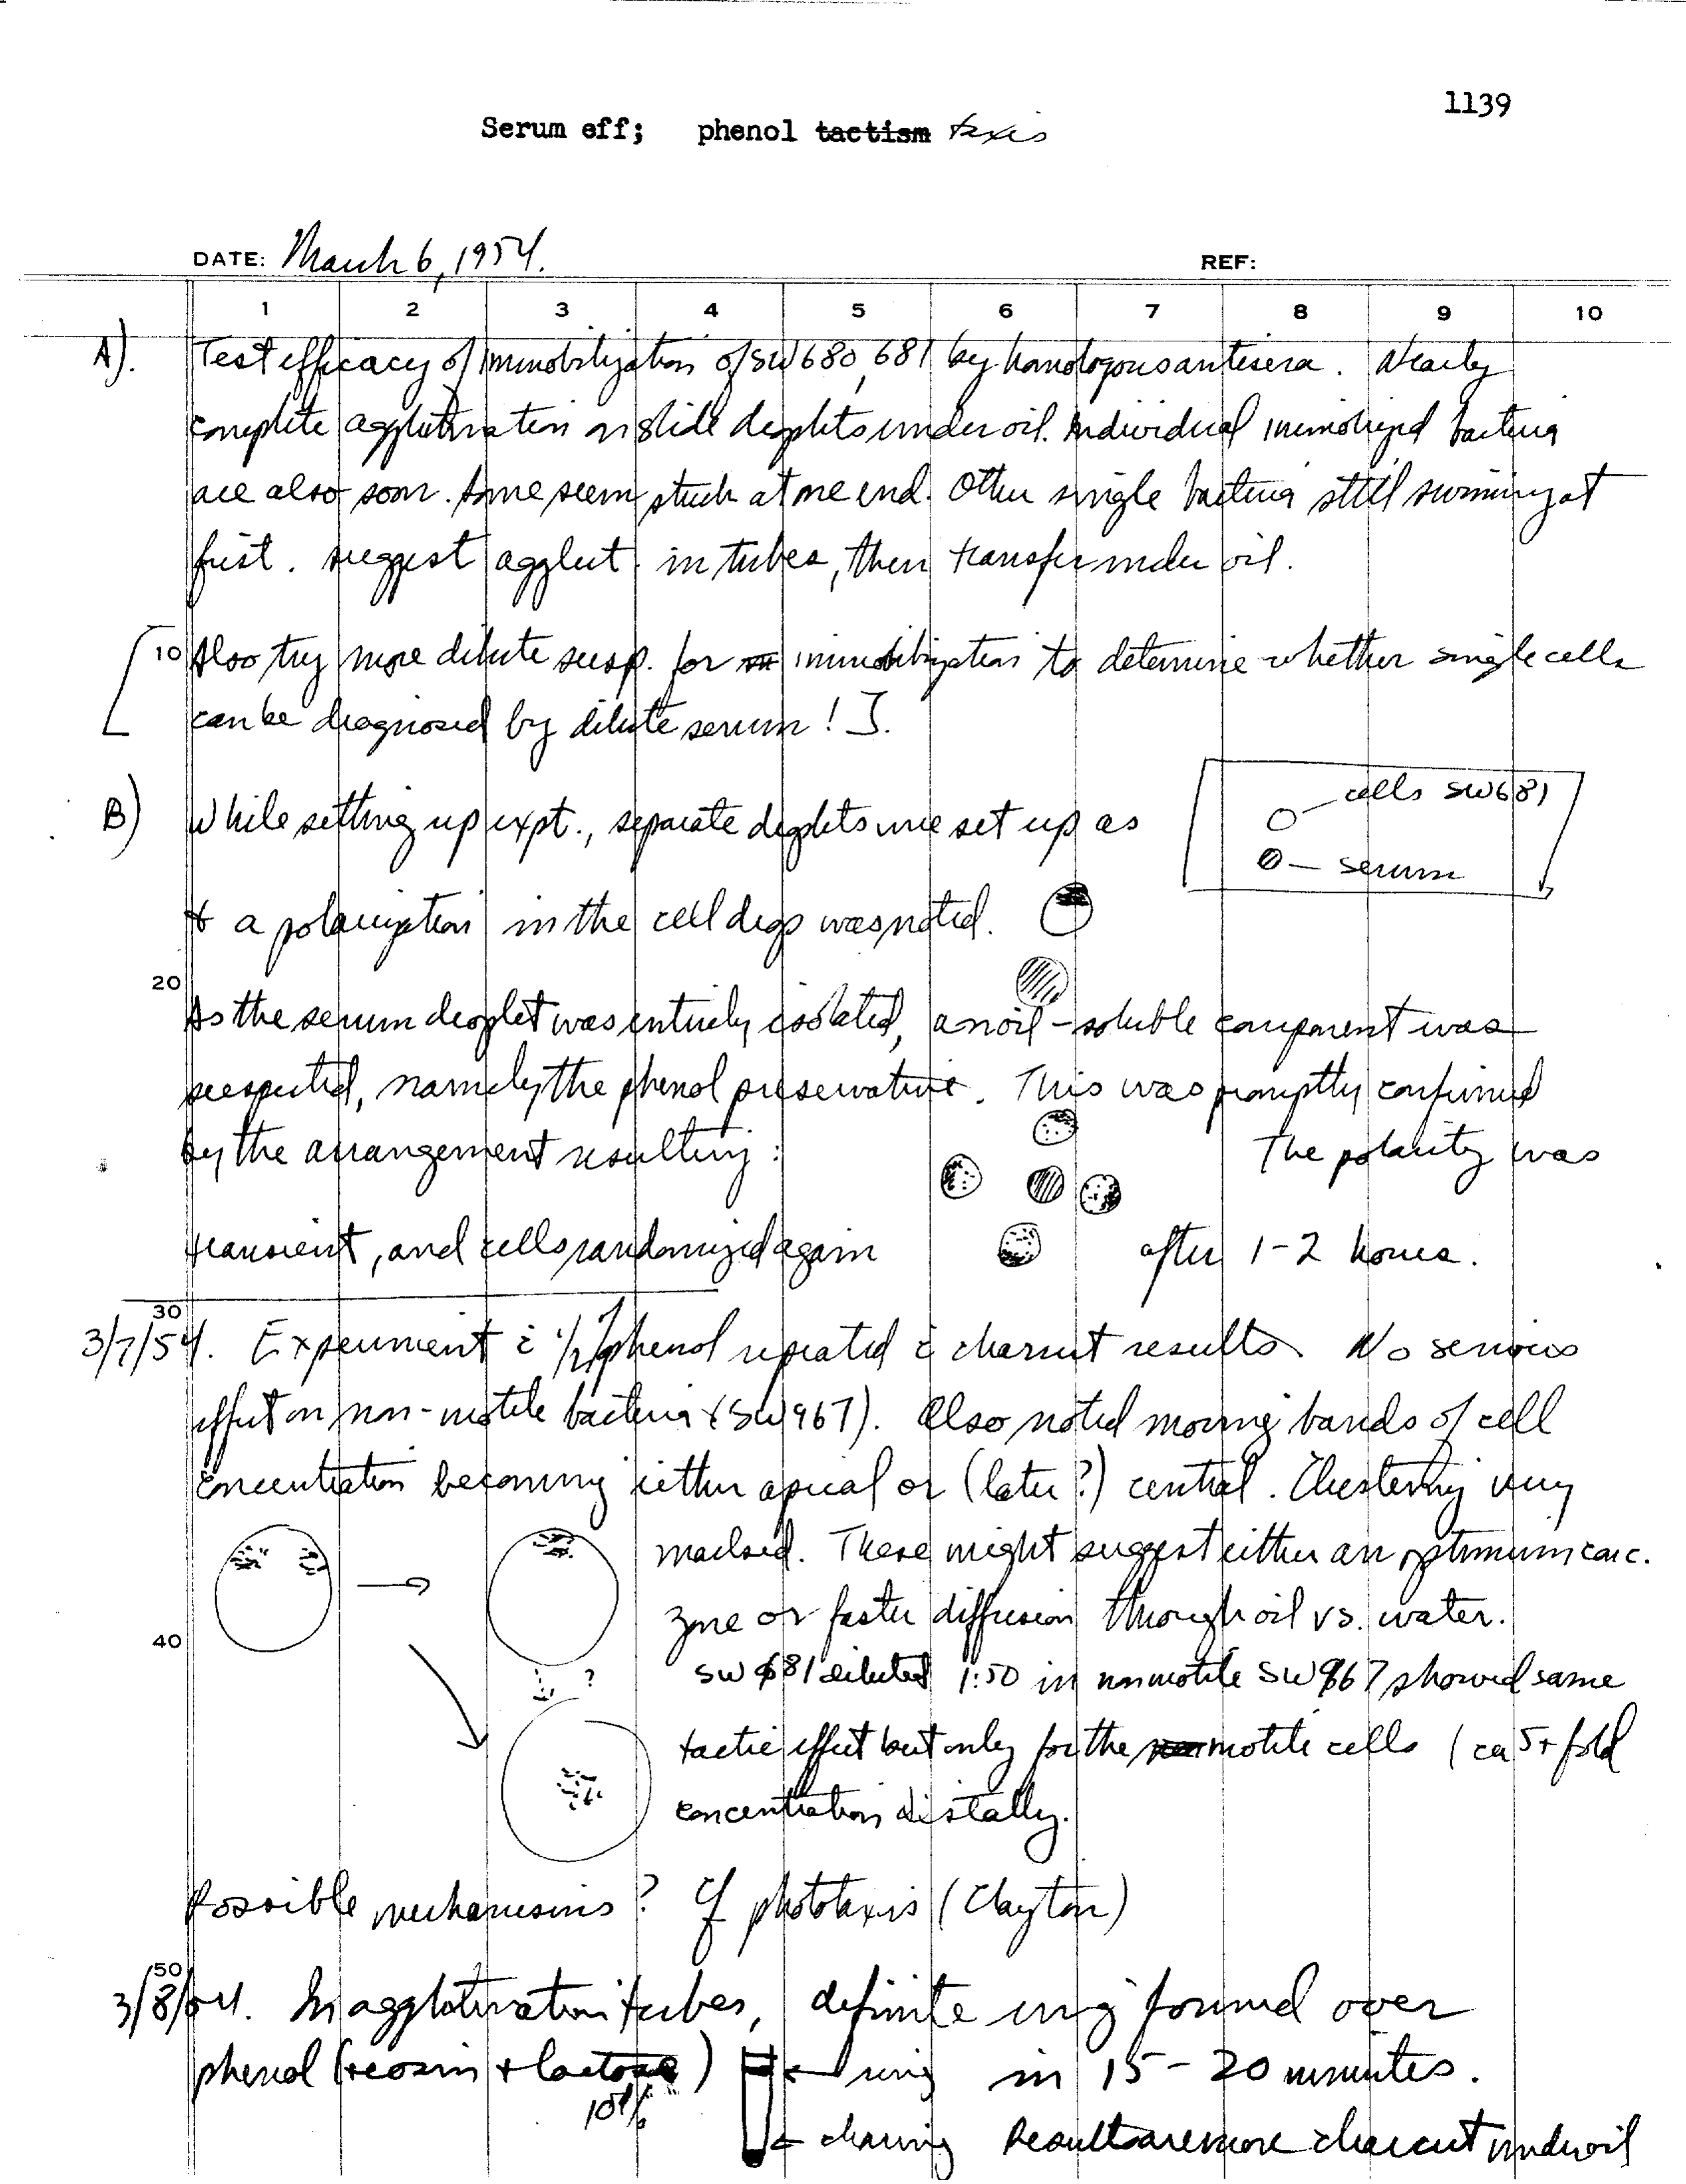 1139
Serum eff; phenol tactism taxis
DATE: March 6, 1954. REF:
1 2 3 4 5 6 7 8 9 10
A). Test efficacy of immobilization of SW680, 681 by homologous antisera. Nearly
complete agglutination in slide droplets under oil. Individual immobilized bacteria
are also seen. Some seem stuck at one end. Other single bacteria still swimming at
first. Suggest agglut. in tubes, then transfer under oil.
[ 10 Also try more dilute susp. for immobilization to determine whether single cells
can be diagnosed by dilute serum! ].
B) While setting up expt., separate droplets were set up as
cells SW681
serum
& a polarization in the cell drops was noted.
20
As the serum droplet was entirely isolated, an oil-soluble component was
suspected, namely the phenol preservative. This was promptly confirmed
by the arrangement resulting: The polarity was
transient, and cells randomized again after 1-2 hours.
30
3/7/54. Experiment c̄ phenol repeated c̄ clearcut results. No serious
effect on non-motile bacteria (SW967). Also noted moving bands of cell
concentration becoming either apical or (later?) central. Clustering very
marked. These might suggest either an optimum conc.
zone or faster diffusion through oil vs. water.
40
SW681 diluted 1:50 in nonmotile SW967 showed same
?
tactic effect but only for the motile cells (ca 5+ fold
concentration distally.
Possible mechanisms? Cf phototaxis (Clayton)
50
3/8/54. In agglutination tubes, definite ring formed over
phenol (+eosin + lactose) ← ring in 15-20 minutes.
10%
← clearing Results are more clearcut under oil